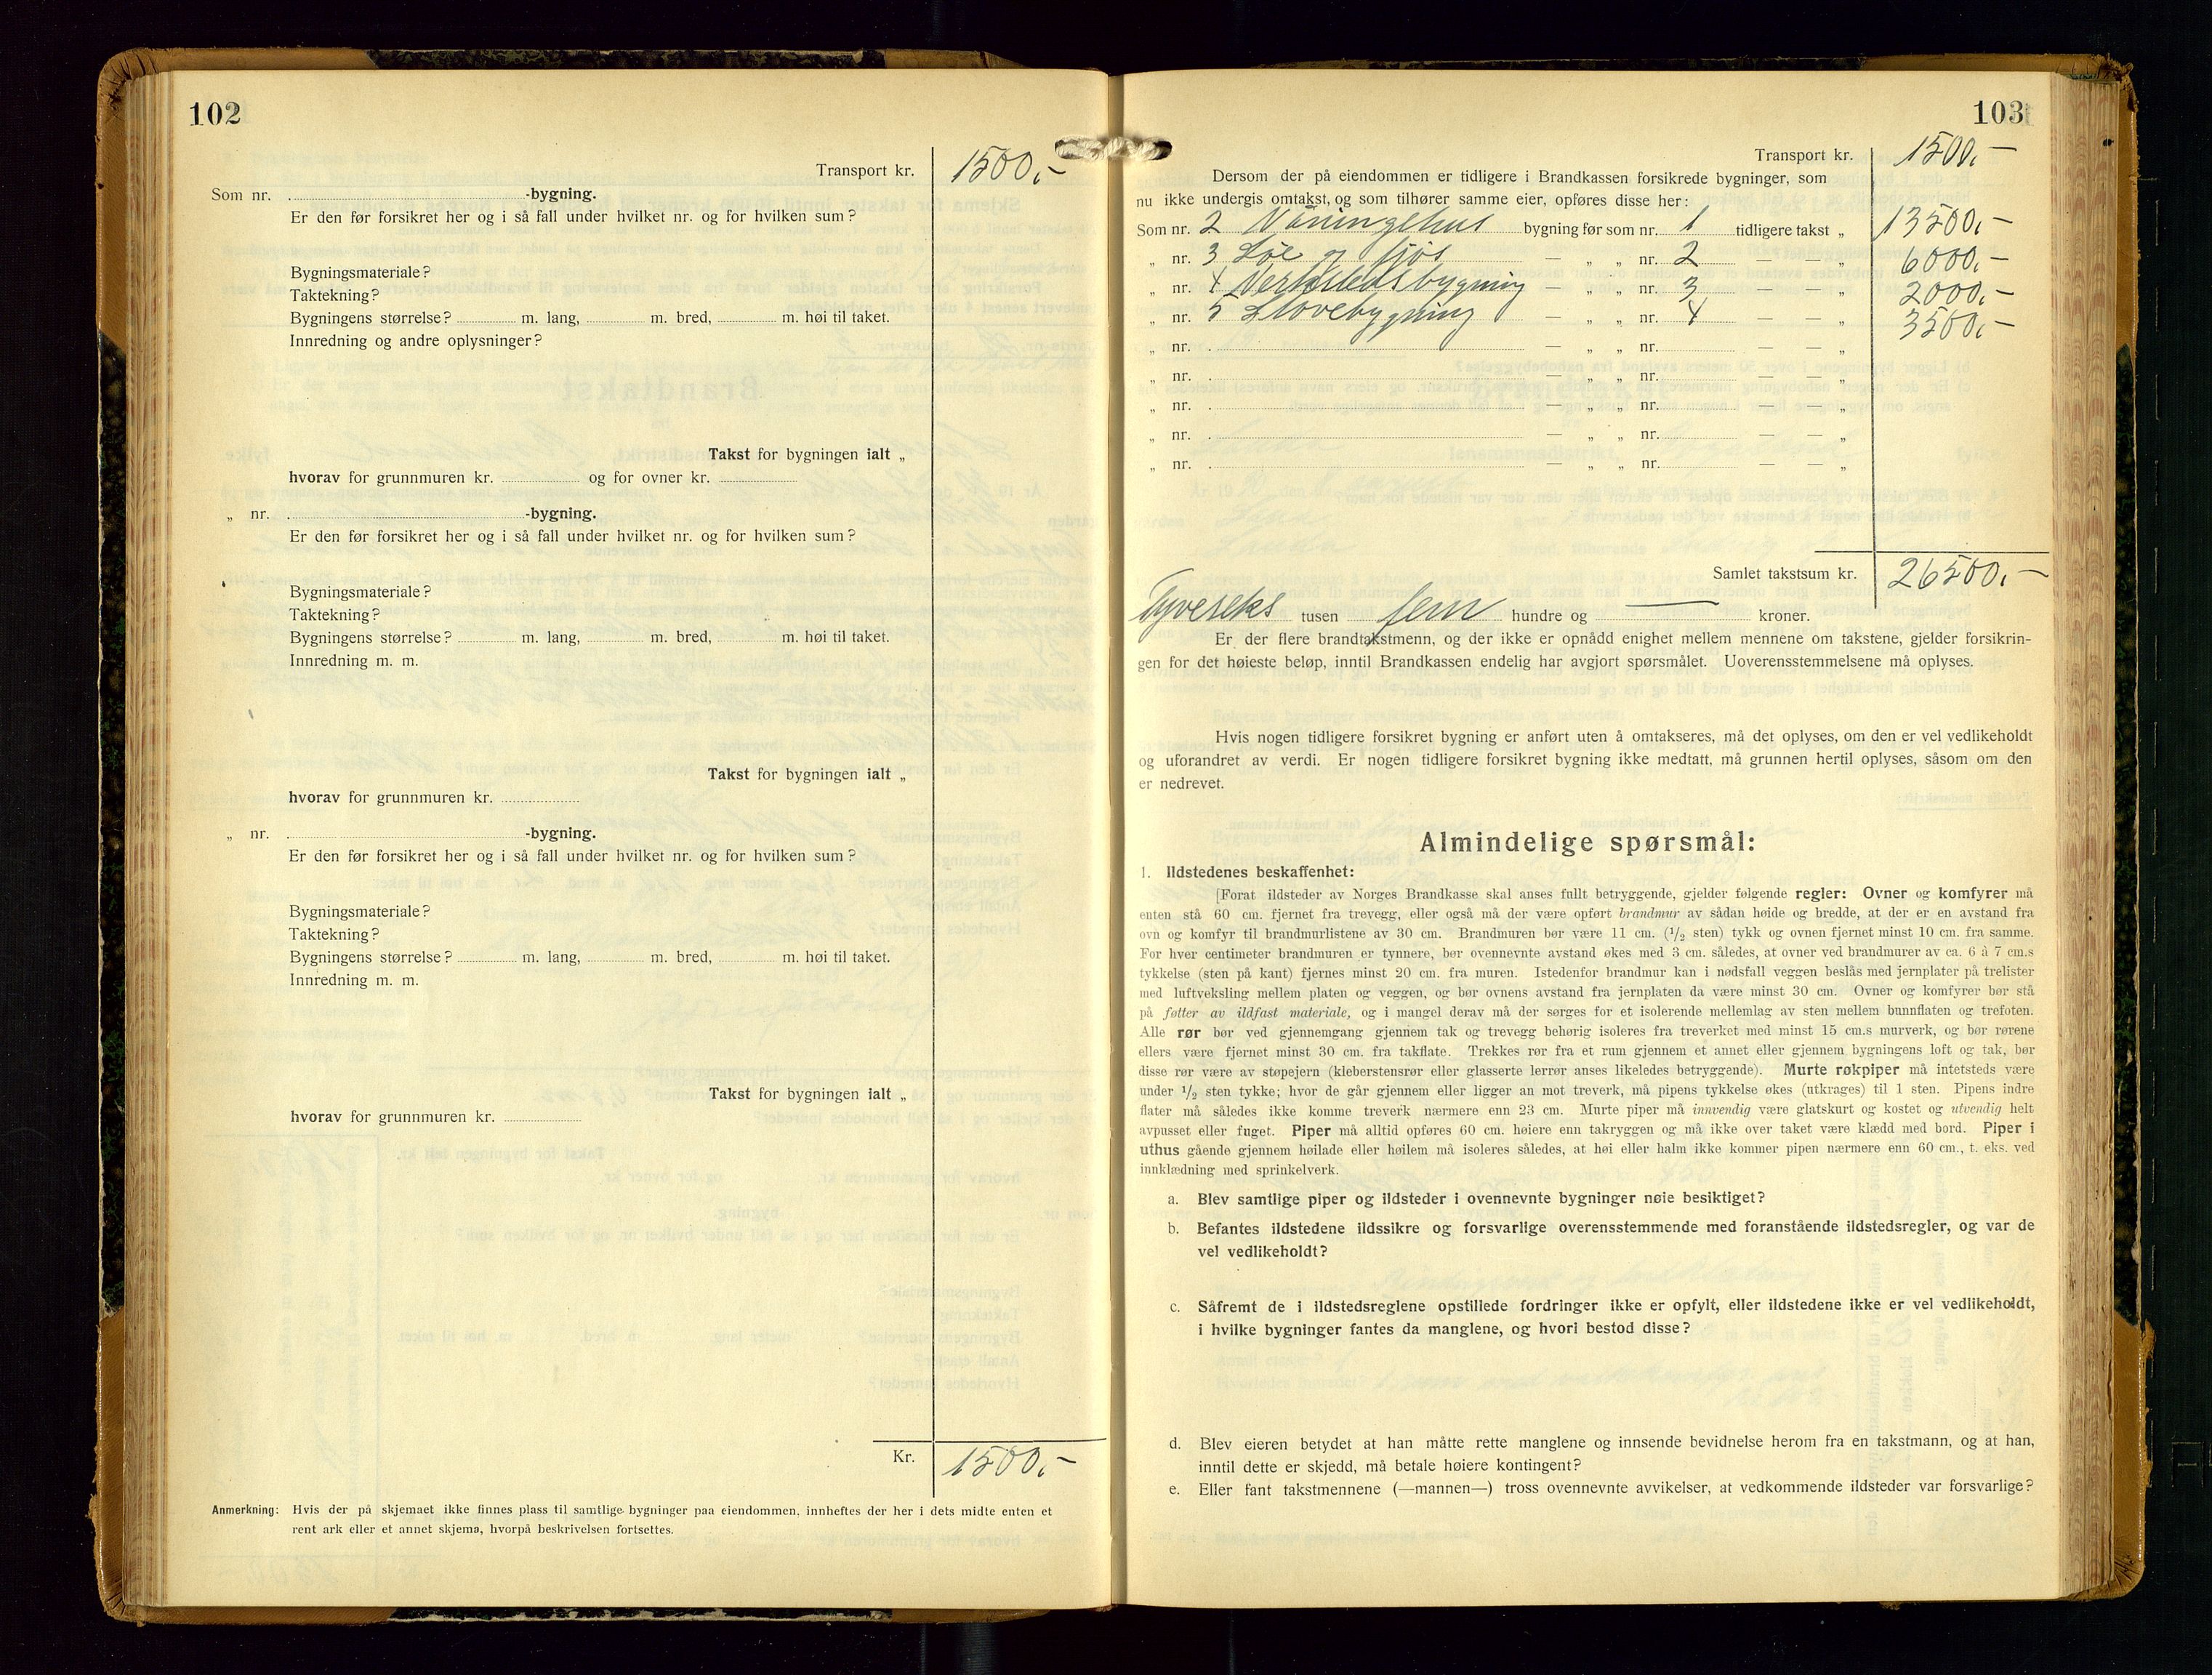 102
Transport kr. 1500,-
Som nr. -bygning.
Er den før forsikret her og i så fall under hvilket nr. og for hvilken sum?
Bygningsmateriale?
Taktekning?
Bygningens størrelse? m. lang, m. bred, m. høi til taket.
Innredning og andre oplysninger?
Takst for bygningen ialt „
hvorav for grunnmuren kr. og for ovner kr.
„ nr. -bygning.
Er den før forsikret her og i så fall under hvilket nr. og for hvilken sum?
Bygningsmateriale?
Taktekning?
Bygningens størrelse? m. lang, m. bred, m. høi til taket.
Innredning m. m.
Takst for bygningen ialt „
hvorav for grunnmuren kr.
„ nr. -bygning.
Er den før forsikret her og i så fall under hvilket nr. og for hvilken sum?
Bygningsmateriale?
Taktekning?
Bygningens størrelse? m. lang, m. bred, m. høi til taket.
Innredning m. m.
Takst for bygningen ialt „
hvorav for grunnmuren kr.
Kr. 1500,-
Anmerkning: Hvis der på skjemaet ikke finnes plass til samtlige bygninger paa eiendommen, innheftes der her i dets midte enten et
rent ark eller et annet skjema, hvorpå beskrivelsen fortsettes.
103
Transport kr. 1500,-
Dersom der på eiendommen er tidligere i Brandkassen forsikrede bygninger, som
nu ikke undergis omtakst, og som tilhører samme eier, opføres disse her:
Som nr. 2 Våningehus bygning før som nr. 1 tidligere takst „ 13500,-
„ nr. 3 Løe og fjøs — „ „ nr. 2 — — „ 6000,-
„ nr. 4 Verkstedsbygning — „ „ nr. 3 — — „ 2000,-
„ nr. 5 Stovebygning — „ „ nr. 4 — — „ 3500,-
„ nr. — „ „ nr. — — „
„ nr. — „ „ nr. — — „
„ nr. — „ „ nr. — — „
„ nr. — „ „ nr. — — „
„ nr. — „ „ nr. — — „
Samlet takstsum kr. 26500,-
Tyveseks tusen fem hundre og — kroner.
Er der flere brandtakstmenn, og der ikke er opnådd enighet mellem mennene om takstene, gjelder forsikrin-
gen for det høieste beløp, inntil Brandkassen endelig har avgjort spørsmålet. Uoverensstemmelsene må oplyses.
Hvis nogen tidligere forsikret bygning er anført uten å omtakseres, må det oplyses, om den er vel vedlikeholdt
og uforandret av verdi. Er nogen tidligere forsikret bygning ikke medtatt, må grunnen hertil oplyses, såsom om den
er nedrevet.
Almindelige spørsmål:
1. Ildstedenes beskaffenhet:
[Forat ildsteder av Norges Brandkasse skal anses fullt betryggende, gjelder følgende regler: Ovner og komfyrer må
enten stå 60 cm. fjernet fra trevegg, eller også må der være opført brandmur av sådan høide og bredde, at der er en avstand fra
ovn og komfyr til brandmurlistene av 30 cm. Brandmuren bør være 11 cm. (1/2 sten) tykk og ovnen fjernet minst 10 cm. fra samme.
For hver centimeter brandmuren er tynnere, bør ovennevnte avstand økes med 3 cm. således, at ovner ved brandmurer av ca. 6 à 7 cm.s
tykkelse (sten på kant) fjernes minst 20 cm. fra muren. Istedenfor brandmur kan i nødsfall veggen beslås med jernplater på trelister
med luftveksling mellem platen og veggen, og bør ovnens avstand fra jernplaten da være minst 30 cm. Ovner og komfyrer bør stå
på føtter av ildfast materiale, og i mangel derav må der sørges for et isolerende mellemlag av sten mellem bunnflaten og trefoten.
Alle rør bør ved gjennemgang gjennem tak og trevegg behørig isoleres fra treverket med minst 15 cm.s murverk, og bør rørene
ellers være fjernet minst 30 cm. fra takflate. Trekkes rør fra et rum gjennem et annet eller gjennem bygningens loft og tak, bør
disse rør være av støpejern (kleberstensrør eller glasserte lerrør anses likeledes betryggende). Murte røkpiper må intetsteds være
under 1/2 sten tykke; hvor de går gjennem eller ligger an mot treverk, må pipens tykkelse økes (utkrages) til 1 sten. Pipens indre
flater må således ikke komme treverk nærmere enn 23 cm. Murte piper må innvendig være glatskurt og kostet og utvendig helt
avpusset eller fuget. Piper må alltid opføres 60 cm. høiere enn takryggen og må ikke over taket være klædd med bord. Piper i
uthus gående gjennem høilade eller høilem må isoleres således, at høi eller halm ikke kommer pipen nærmere enn 60 cm., t. eks. ved
innklædning med sprinkelverk.
a. Blev samtlige piper og ildsteder i ovennevnte bygninger nøie besiktiget?
b. Befantes ildstedene ildssikre og forsvarlige overensstemmende med foranstående ildstedsregler, og var de
vel vedlikeholdt?
c. Såfremt de i ildstedsreglene opstillede fordringer ikke er opfylt, eller ildstedene ikke er vel vedlikeholdt,
i hvilke bygninger fantes da manglene, og hvori bestod disse?
d. Blev eieren betydet at han måtte rette manglene og innsende bevidnelse herom fra en takstmann, og at han,
inntil dette er skjedd, må betale høiere kontingent?
e. Eller fant takstmennene (—mannen—) tross ovennevnte avvikelser, at vedkommende ildsteder var forsvarlige?